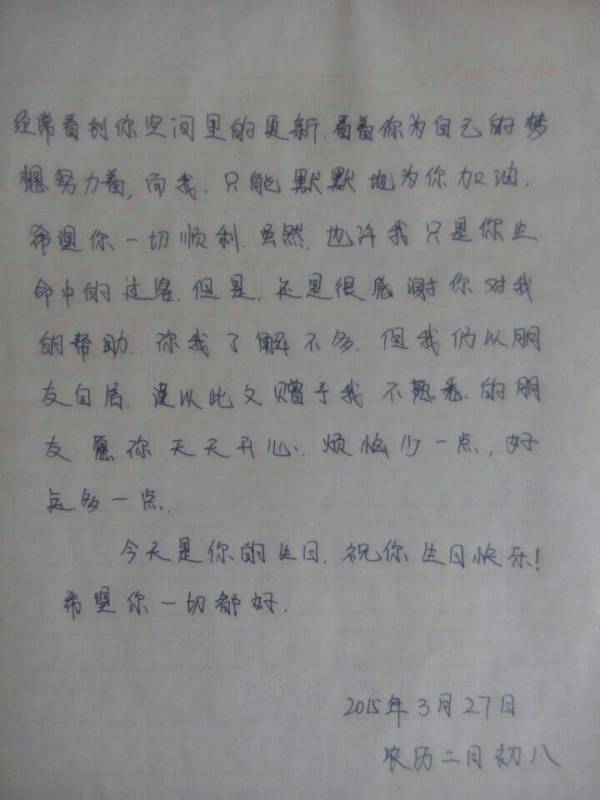 经常看到你空间里的更新.看着你为自己的梦
想努力着,而我.只能默默地为你加油.
希望你一切顺利.虽然.也许我只是你生
命中的过客.但是.还是很感谢你对我
的帮助.你我了解不多.但我仍以朋
友自居.谨以此文赠予我不熟悉的朋
友愿你天天开心.烦恼少一点,好
运多一点.
今天是你的生日.祝你生日快乐!
希望你一切都好.
2015年3月27日
农历二月初八